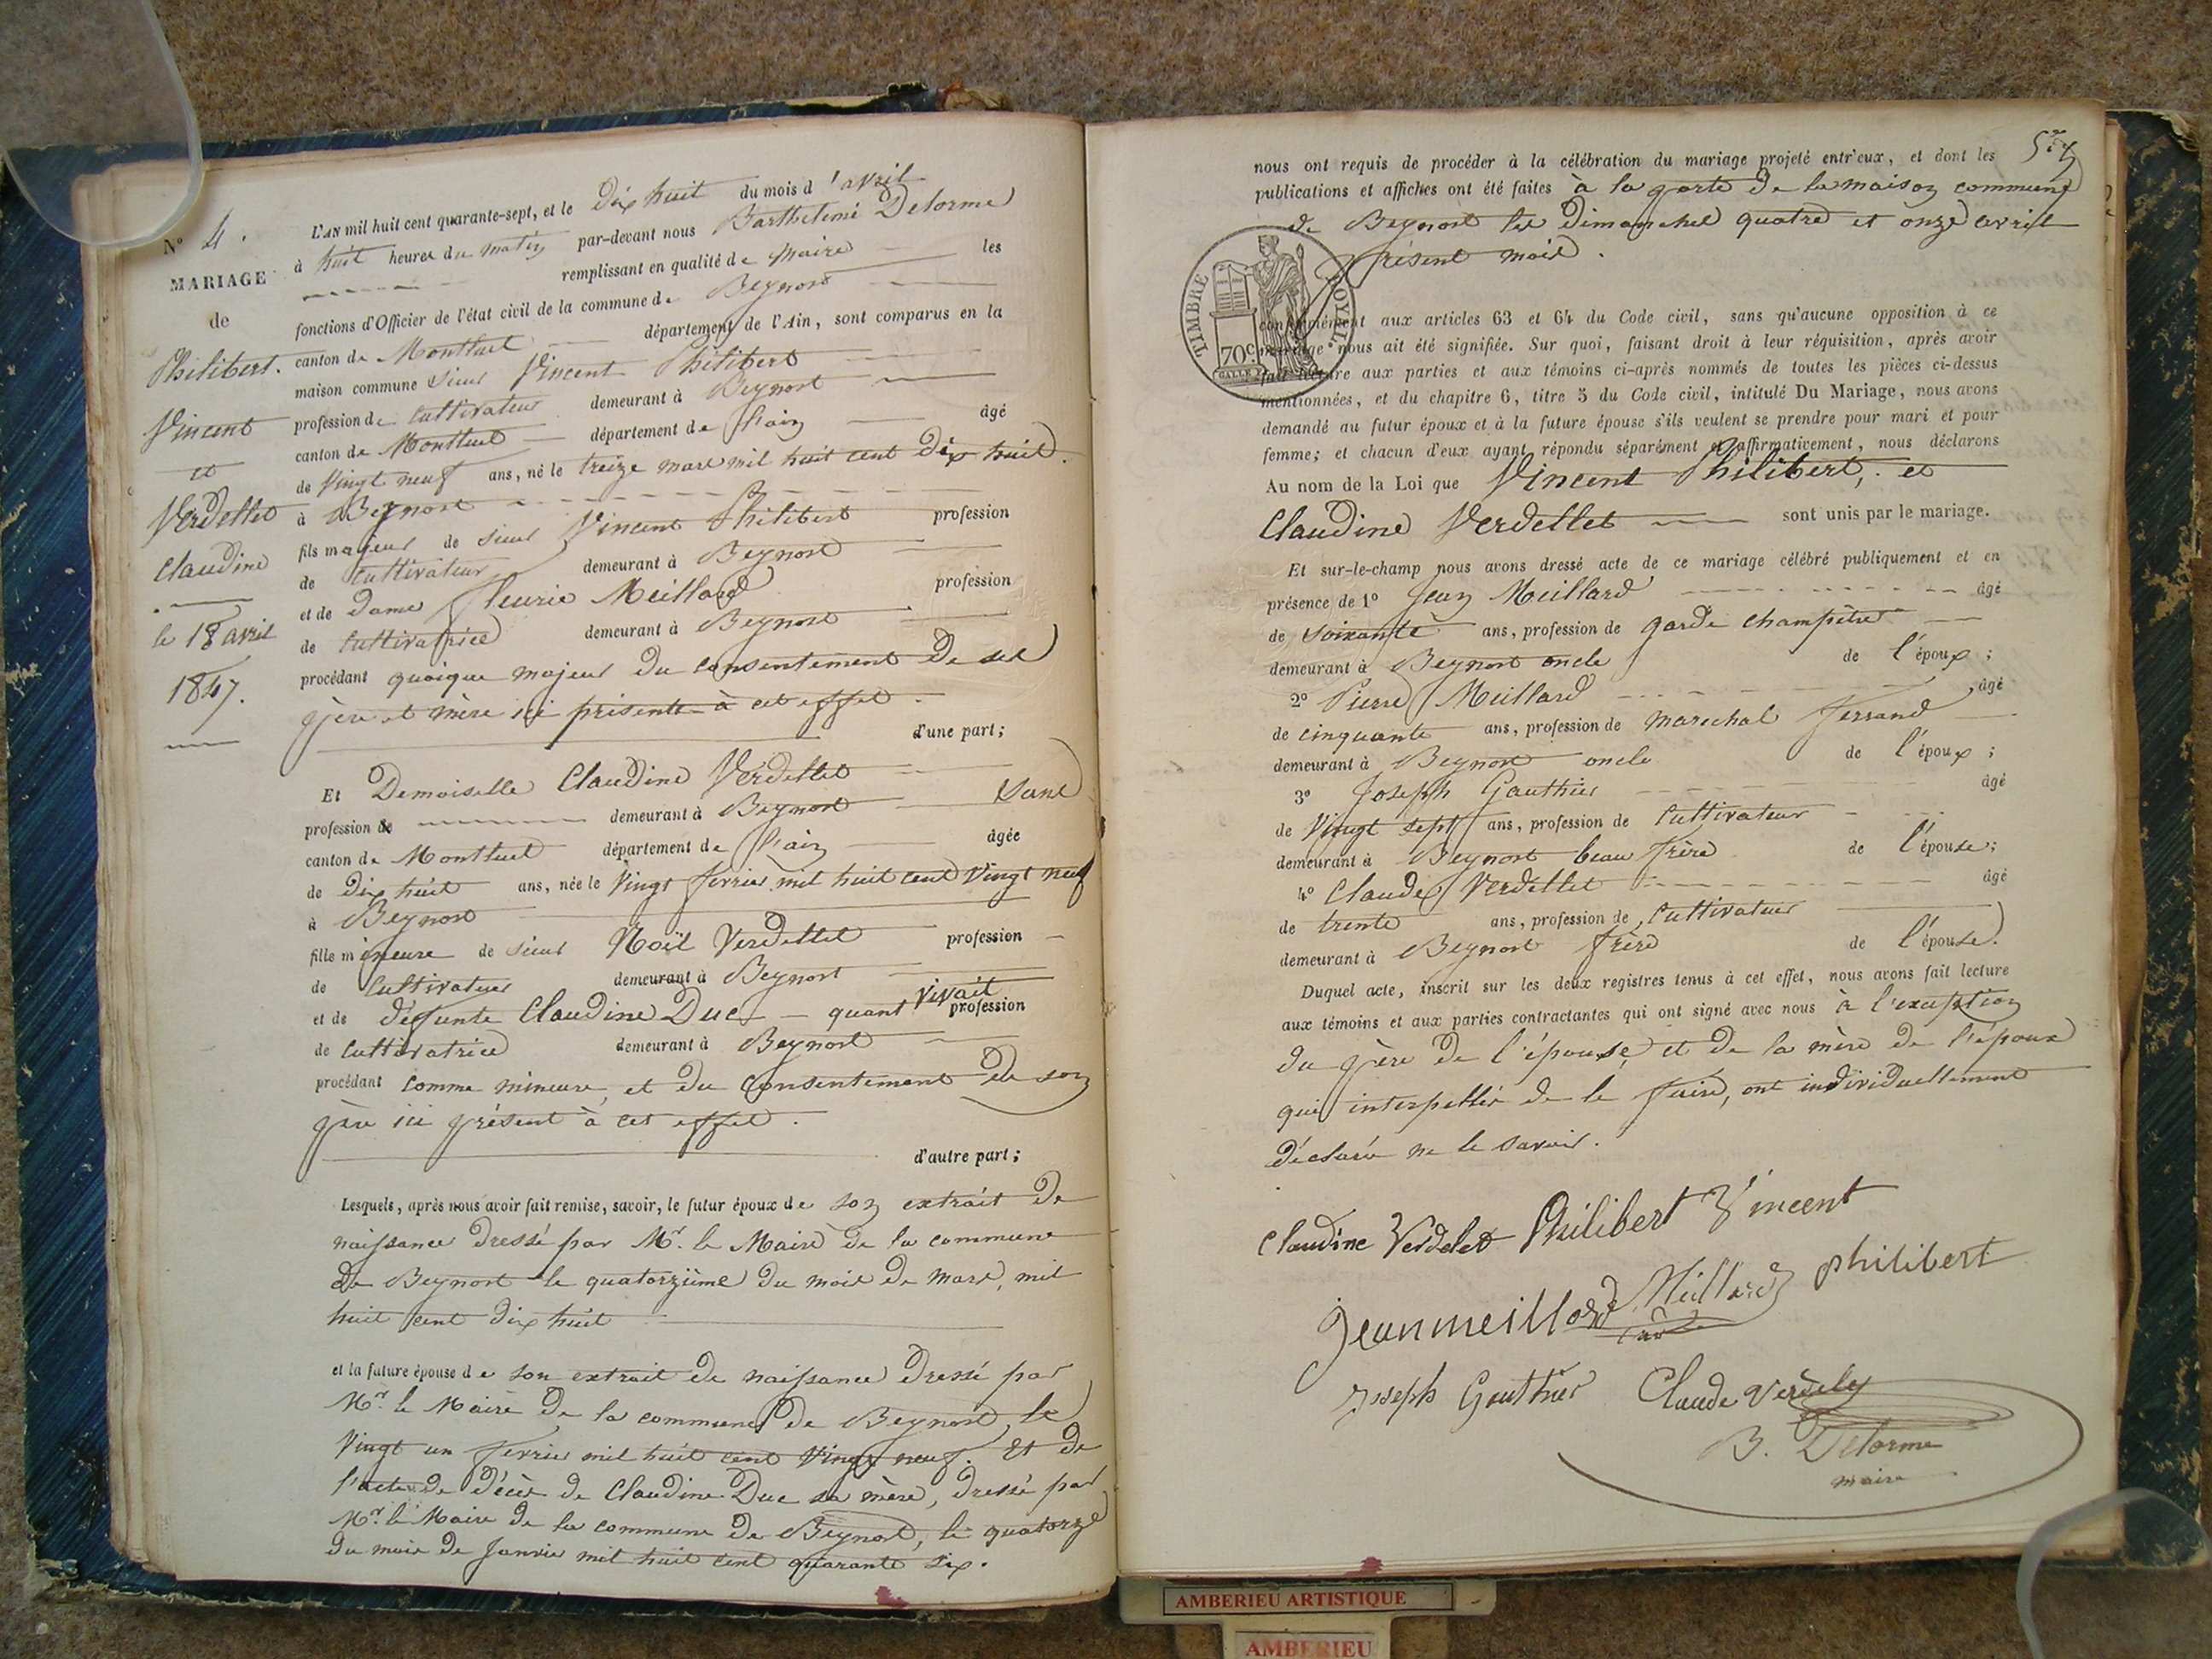 N° 4.
MARIAGE
de
Philibert.
Vincent
et
Verdellet
Claudine
le 18 avril
1847.
L'AN mil huit cent quarante-sept, et le dix huit du mois d'avril
à huit heures du matin par-devant nous Barthelemi Delorme
remplissant en qualité de Maire les
fonctions d'Officier de l'état civil de la commune de Beynost
canton de Montluel département de l'Ain, sont comparus en la
maison commune sieur Vincent Philibert
profession de Cultivateur demeurant à Beynost
canton de Montluel département de l'ain âgé
de Vingt neuf ans, né le treize mars mil huit cent dix huit.
à Beynost
fils majeur de sieur Vincent Philibert profession
de Cultivateur demeurant à Beynost
et de Dame fleurie Meillard profession
de Cultivatrice demeurant à Beynost
procédant quoique majeur du consentement de ses
père et mère ici présents à cet effet.
d'une part;
Et Demoiselle Claudine Verdellet
profession de demeurant à Beynost sans
canton de Montluel département de l'ain âgée
de dix huit ans, née le Vingt fevrier mil huit cent Vingt neuf
à Beynost
fille mineure de sieur Noël Verdellet profession
de Cultivateur demeurant à Beynost
et de défunte Claudine Duc quant vivait profession
de Cultivatrice demeurant à Beynost
procédant comme mineure, et du consentement de son
père ici présent à cet effet.
d'autre part;
Lesquels, après nous avoir fait remise, savoir, le futur époux de son extrait de
naissance dressé par Mr. le Maire de la commune
de Beynost le quatorzième du mois de mars, mil
huit cent dix huit
et la future épouse de son extrait de naissance dressé par
Mr. le Maire de la commune de Beynost, le
Vingt un fevrier mil huit cent Vingt neuf. Et de
l'acte de décès de Claudine Duc sa mère, dressé par
Mr. le Maire de la commune de Beynost, le quatorze
du mois de Janvier mil huit cent quarante six.
nous ont requis de procéder à la célébration du mariage projeté entr'eux, et dont les
publications et affiches ont été faites à la porte de la maison commune
de Beynost les dimanches quatre et onze avril
présent mois.
TIMBRE ROYAL.
70c
conformément aux articles 63 et 64 du Code civil, sans qu'aucune opposition à ce
mariage nous ait été signifiée. Sur quoi, faisant droit à leur réquisition, après avoir
fait lecture aux parties et aux témoins ci-après nommés de toutes les pièces ci-dessus
mentionnées, et du chapitre 6, titre 5 du Code civil, intitulé Du Mariage, nous avons
demandé au futur époux et à la future épouse s'ils veulent se prendre pour mari et pour
femme; et chacun d'eux ayant répondu séparément et affirmativement, nous déclarons
Au nom de la Loi que Vincent Philibert, et
Claudine Verdellet sont unis par le mariage.
Et sur-le-champ nous avons dressé acte de ce mariage célébré publiquement et en
présence de 1° Jean Meillard âgé
de soixante ans, profession de garde champêtre
demeurant à Beynost oncle de l'époux;
2° Pierre Meillard âgé
de cinquante ans, profession de marechal ferrand
demeurant à Beynost oncle de l'époux;
3° Joseph Gauthier âgé
de Vingt sept ans, profession de Cultivateur
demeurant à Beynost beau frère de l'épouse;
4° Claude Verdellet âgé
de trente ans, profession de Cultivateur
demeurant à Beynost frère de l'épouse.
Duquel acte, inscrit sur les deux registres tenus à cet effet, nous avons fait lecture
aux témoins et aux parties contractantes qui ont signé avec nous à l'exception
du père de l'épouse, et de la mère de l'époux
qui interpellés de le faire, ont individuellement
déclaré ne le savoir.
Claudine Verdelet Philibert Vincent
Jean meillard Meillard philibert
Joseph Gauthier Claude Verdely
B. Delorme
maire
AMBERIEU ARTISTIQUE
AMBERIEU